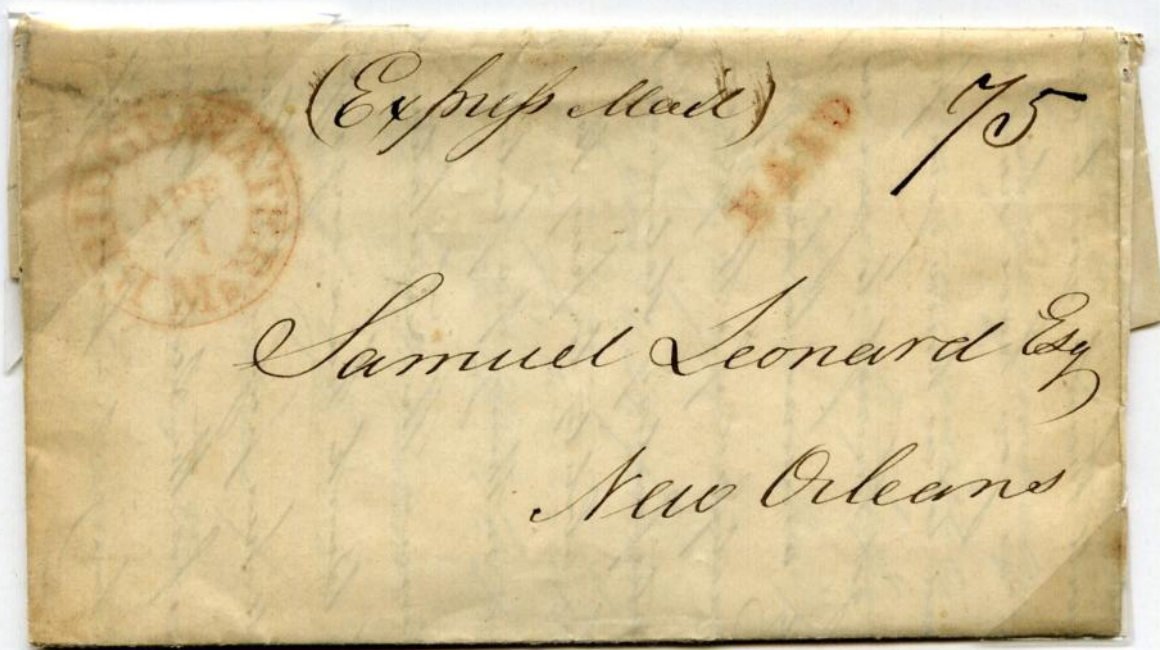 (Express Mail)
PAID
75
Samuel Leonard Esq
New Orleans